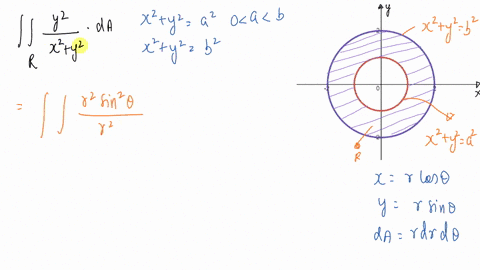 ∬_R y²/(x²+y²) · dA
x²+y² = a² 0<a<b
x²+y² = b²
= ∫∫ r² sin²θ / r²
y
x²+y²=b²
-2 0 2 x
x²+y²=a²
R
x = r cosθ
y = r sinθ
dA = r dr dθ